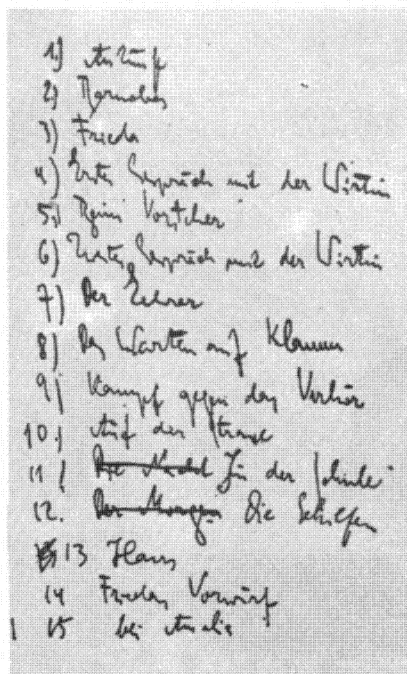 1) Ankunft
2) Barnabas
3) Frieda
4) Erstes Gespräch mit der Wirtin
5) Beim Vorsteher
6) Zweites Gespräch mit der Wirtin
7) Der Lehrer
8) Das Warten auf Klamm
9) Kampf gegen das Verhör
10) Auf der Strasse
11) Die Nacht In der Schule
12. Der Morgen Die Gehilfen
13 Hans
14 Friedas Vorwurf
15 bei Amalia